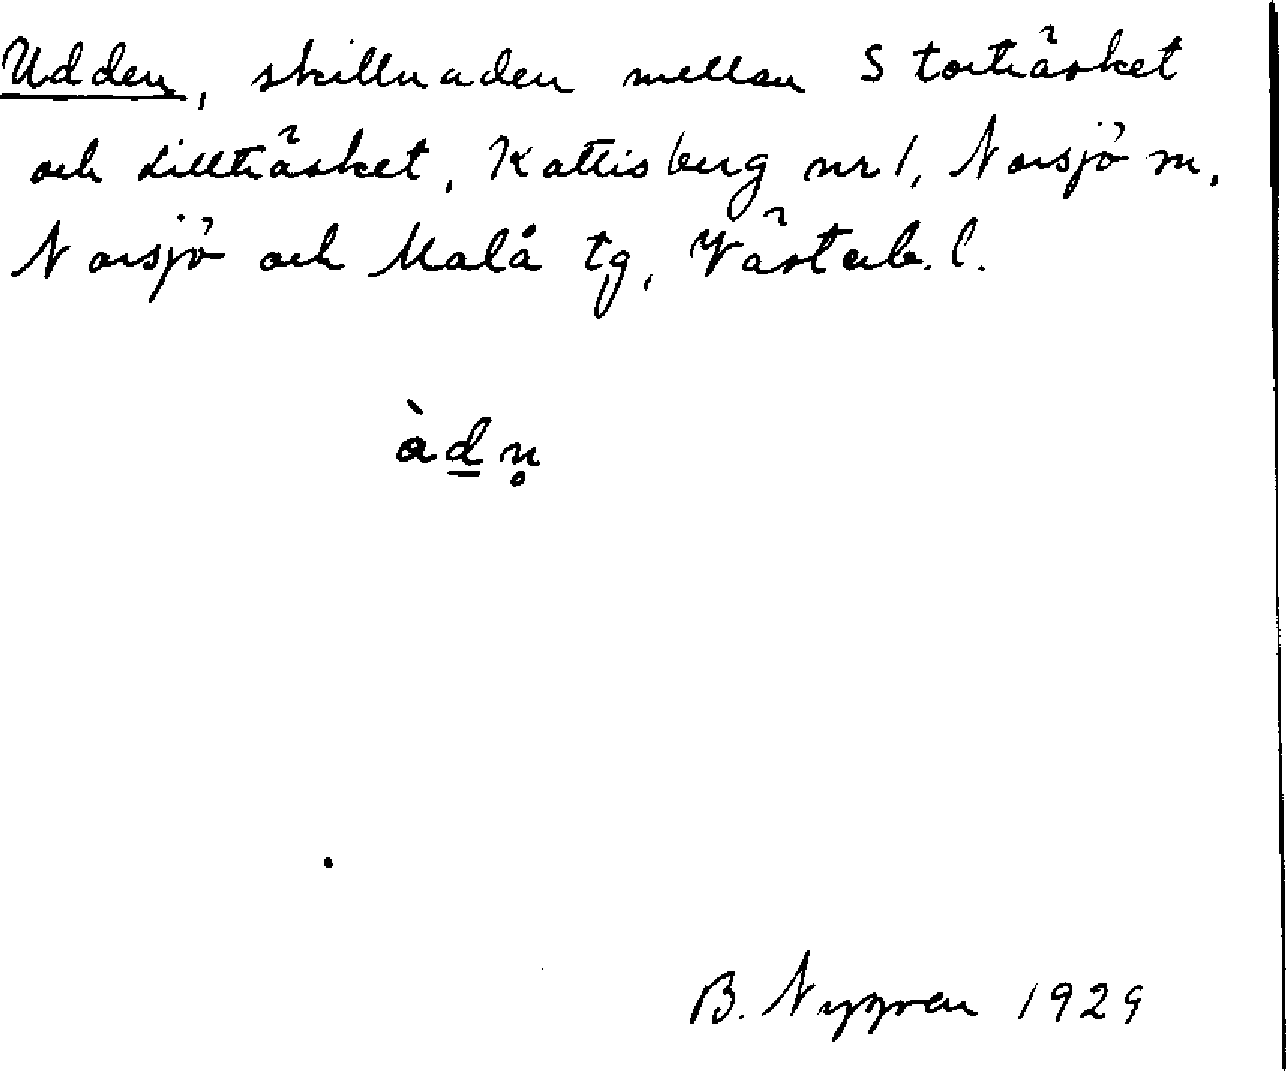 Udden, skillnaden mellan Storträsket
och Lillträsket, Kattisberg nr 1, Norsjö sn,
Norsjö och Malå tg, Västerb. l.
àd̲n̥
B. Nygren 1929